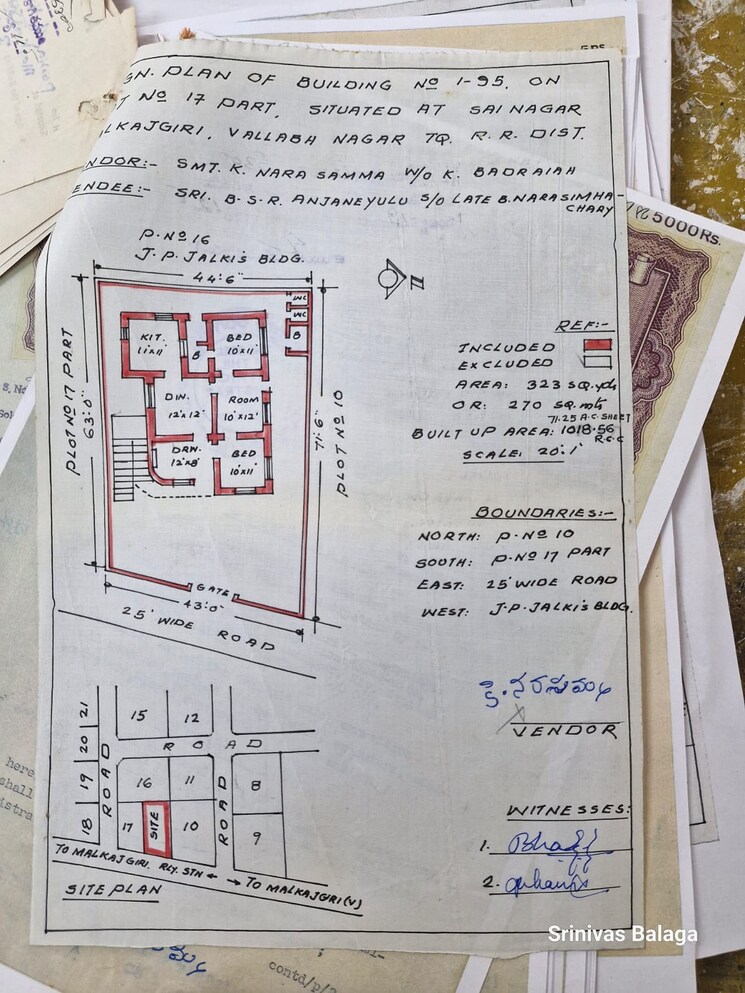 GN. PLAN OF BUILDING No 1-95, ON
T No 17 PART, SITUATED AT SAI NAGAR
LKAJGIRI, VALLABH NAGAR TQ. R.R. DIST.
NDOR:- SMT. K. NARASAMMA W/O K. BADRAIAH
ENDEE:- SRI. B.S.R. ANJANEYULU S/O LATE B.NARASIMHA-
CHARY
5000Rs.
P.No 16
J.P. JALKI'S BLDG.
44'6"
N
WC
WC
B
KIT.
11'x11'
B
BED
10'x11'
DIN.
12'x12'
ROOM
10'x12'
DRW.
12'x8'
BED
10'x11'
PLOT No 17 PART
63'0"
71'6"
PLOT No 10
GATE
43'0"
25' WIDE ROAD
REF:-
INCLUDED
EXCLUDED
AREA: 323 SQ.yds
OR: 270 SQ.mts
71.25 A.C. SHEET
BUILT UP AREA: 1018.56
R.C.C
SCALE: 20'.1"
BOUNDARIES:-
NORTH: P.No 10
SOUTH: P.No 17 PART
EAST: 25' WIDE ROAD
WEST: J.P. JALKI'S BLDG.
కె. నరసమ్మ
VENDOR
WITNESSES:
1.
2.
21
20
19
18
ROAD
15
12
ROAD
16
11
ROAD
8
17
SITE
10
9
TO MALKAJGIRI. RLY. STN ← → TO MALKAJGIRI(V)
SITE PLAN
here
shall
istra
contd/p/2
Srinivas Balaga